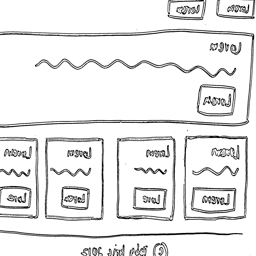 Lorem Lorem
Lorem
Lorem
Lorem Lorem Lorem Lorem
Lorem Lore Lorem Lore